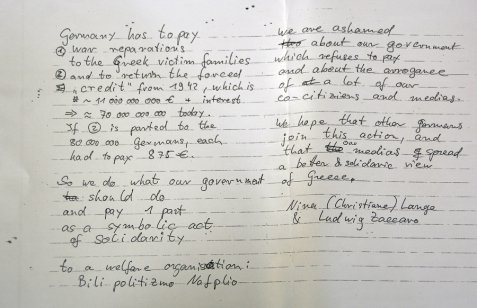 Germany has to pay
① war reparations
to the Greek victim families
② and to return the forced
"credit" from 1942, which is
~ 11 000 000 000 € + interest
⇒ ≈ 70 000 000 000 today.
If ② is parted to the
80 000 000 Germans, each
had to pay 875 €.
So we do what our government
should do
and pay 1 part
as a symbolic act
of solidarity
to a welfare organisation:
Bili politizmo Nafplio
we are ashamed
about our government
which refuses to pay
and about the arrogance
of a lot of our
co-citizens and medias.
We hope that other germans
join this action, and
that our medias spread
a beter & solidaric view
of Greece.
Nina (Christiane) Lange
& Ludwig Zaccaro